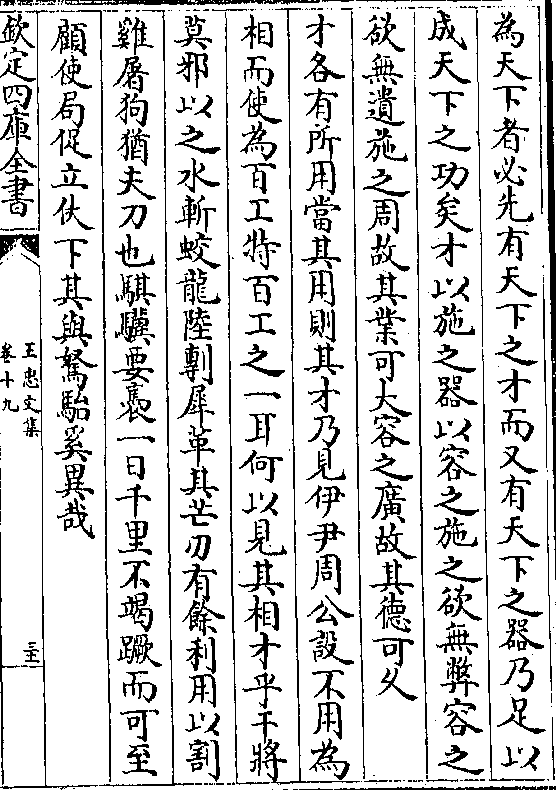 為天下者必先有天下之才而又有天下之器乃足以
成天下之功矣才以施之器以容之施之欲無弊容之
欲無遺施之周故其業可大容之廣故其德可久
才各有所用當其用則其才乃見伊尹周公設不用為
相而使為百工特百工之一耳何以見其相才乎干將
莫邪以之水斬蛟龍陸剸犀革其芒刃有餘利用以割
雞屠狗猶夫刀也騏驥要褭一日千里不竭蹶而可至
顧使局促立仗下其與駑駘奚異哉
欽定四庫全書
王忠文集
卷十九